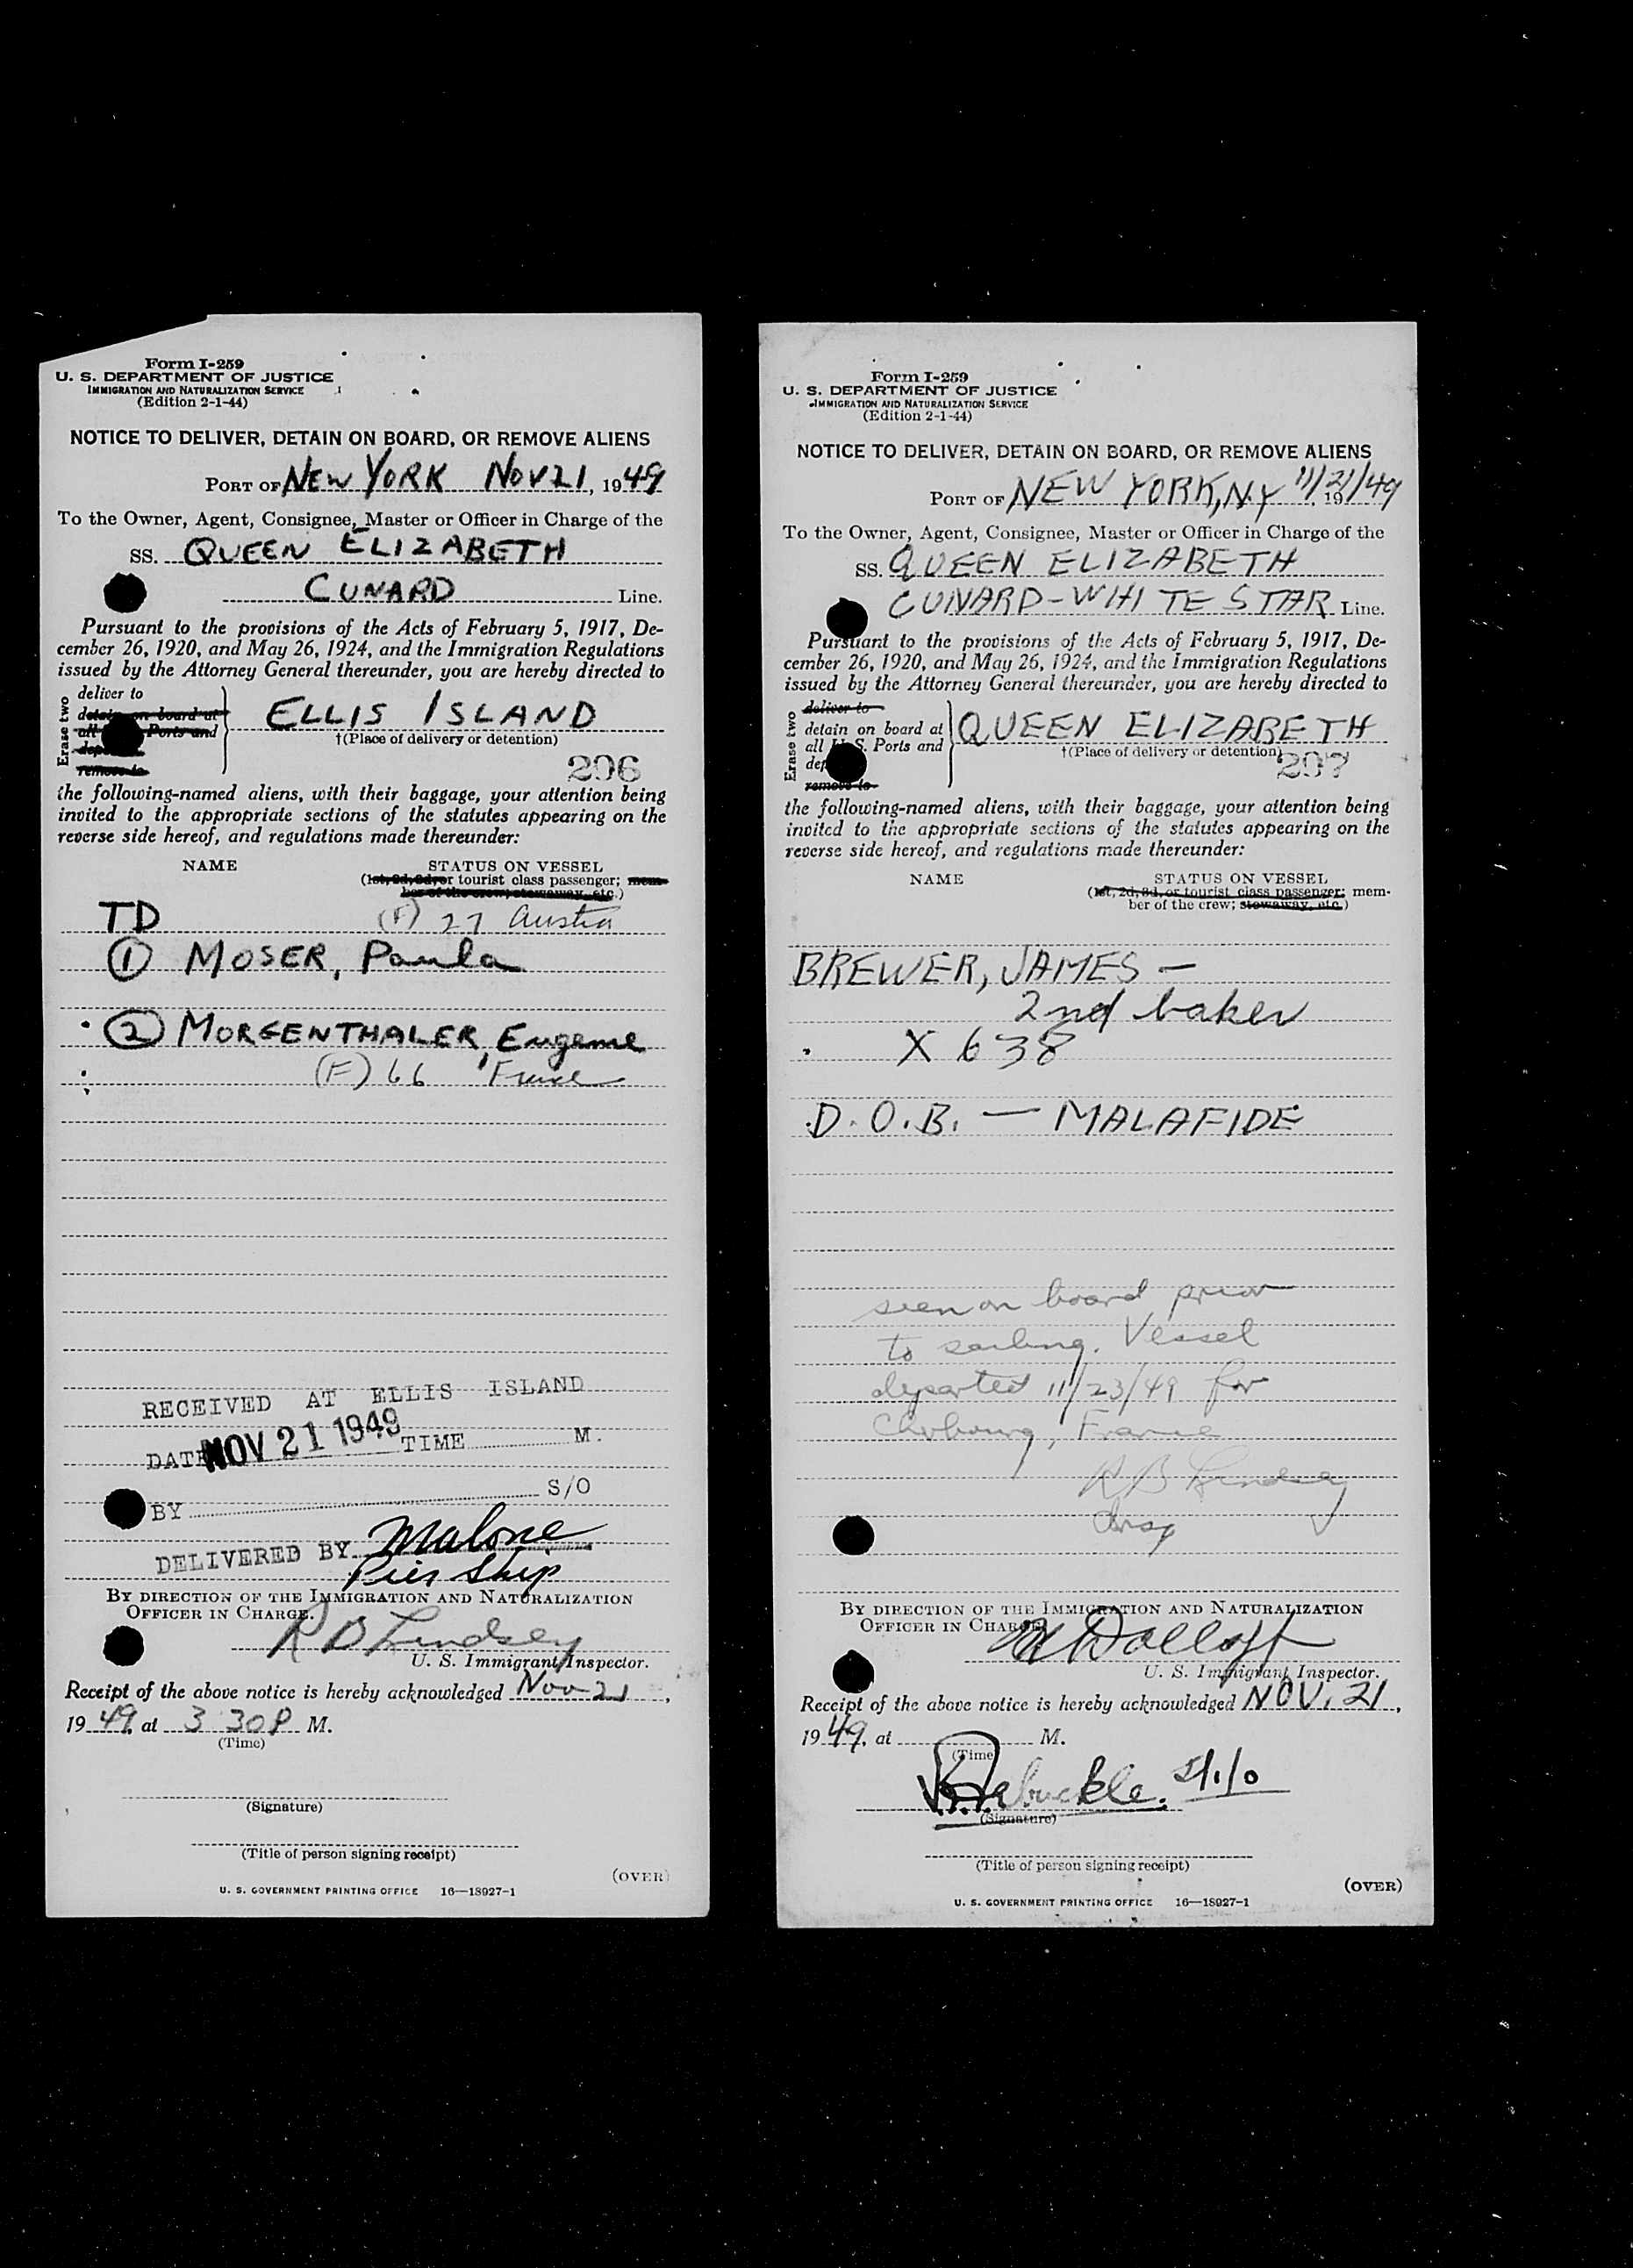 Form I-259
U. S. DEPARTMENT OF JUSTICE
IMMIGRATION AND NATURALIZATION SERVICE
(Edition 2-1-44)
NOTICE TO DELIVER, DETAIN ON BOARD, OR REMOVE ALIENS
PORT OF NEW YORK NOV 21, 1949
To the Owner, Agent, Consignee, Master or Officer in Charge of the
SS. QUEEN ELIZABETH
CUNARD Line.
Pursuant to the provisions of the Acts of February 5, 1917, De-
cember 26, 1920, and May 26, 1924, and the Immigration Regulations
issued by the Attorney General thereunder, you are hereby directed to
Erase two
deliver to
detain on board at
all Ports and
remove to
ELLIS ISLAND
†(Place of delivery or detention)
296
the following-named aliens, with their baggage, your attention being
invited to the appropriate sections of the statutes appearing on the
reverse side hereof, and regulations made thereunder:
NAME STATUS ON VESSEL
(1st, 2d, 3d, or tourist class passenger; mem-
ber of the crew; stowaway, etc.)
TD (F) 27 Austria
1 MOSER, Paula
2 MORGENTHALER, Eugenie
(F) 66 France
RECEIVED AT ELLIS ISLAND
DATE NOV 21 1949 TIME M.
BY S/O
DELIVERED BY Malone
Pier Ship
BY DIRECTION OF THE IMMIGRATION AND NATURALIZATION
OFFICER IN CHARGE.
R B Lindsey
U. S. Immigrant Inspector.
Receipt of the above notice is hereby acknowledged Nov 21,
1949, at 3 30 P M.
(Time)
(Signature)
(Title of person signing receipt)
(OVER)
U. S. GOVERNMENT PRINTING OFFICE 16—18927-1
Form I-259
U. S. DEPARTMENT OF JUSTICE
IMMIGRATION AND NATURALIZATION SERVICE
(Edition 2-1-44)
NOTICE TO DELIVER, DETAIN ON BOARD, OR REMOVE ALIENS
PORT OF NEW YORK, N.Y 11/21/49, 19
To the Owner, Agent, Consignee, Master or Officer in Charge of the
SS. QUEEN ELIZABETH
CUNARD-WHITE STAR Line.
Pursuant to the provisions of the Acts of February 5, 1917, De-
cember 26, 1920, and May 26, 1924, and the Immigration Regulations
issued by the Attorney General thereunder, you are hereby directed to
Erase two
deliver to
detain on board at
all U.S. Ports and
remove to
QUEEN ELIZABETH
†(Place of delivery or detention)
297
the following-named aliens, with their baggage, your attention being
invited to the appropriate sections of the statutes appearing on the
reverse side hereof, and regulations made thereunder:
NAME STATUS ON VESSEL
(1st, 2d, 3d, or tourist class passenger; mem-
ber of the crew; stowaway, etc.)
BREWER, JAMES —
2nd baker
X 638
D.O.B. — MALAFIDE
seen on board prior
to sailing. Vessel
departed 11/23/49 for
Cherbourg, France
R B Lindsey
Insp
BY DIRECTION OF THE IMMIGRATION AND NATURALIZATION
OFFICER IN CHARGE.
U. S. Immigrant Inspector.
Receipt of the above notice is hereby acknowledged NOV. 21,
1949, at M.
(Time)
(Signature)
(Title of person signing receipt)
(OVER)
U. S. GOVERNMENT PRINTING OFFICE 16—18927-1